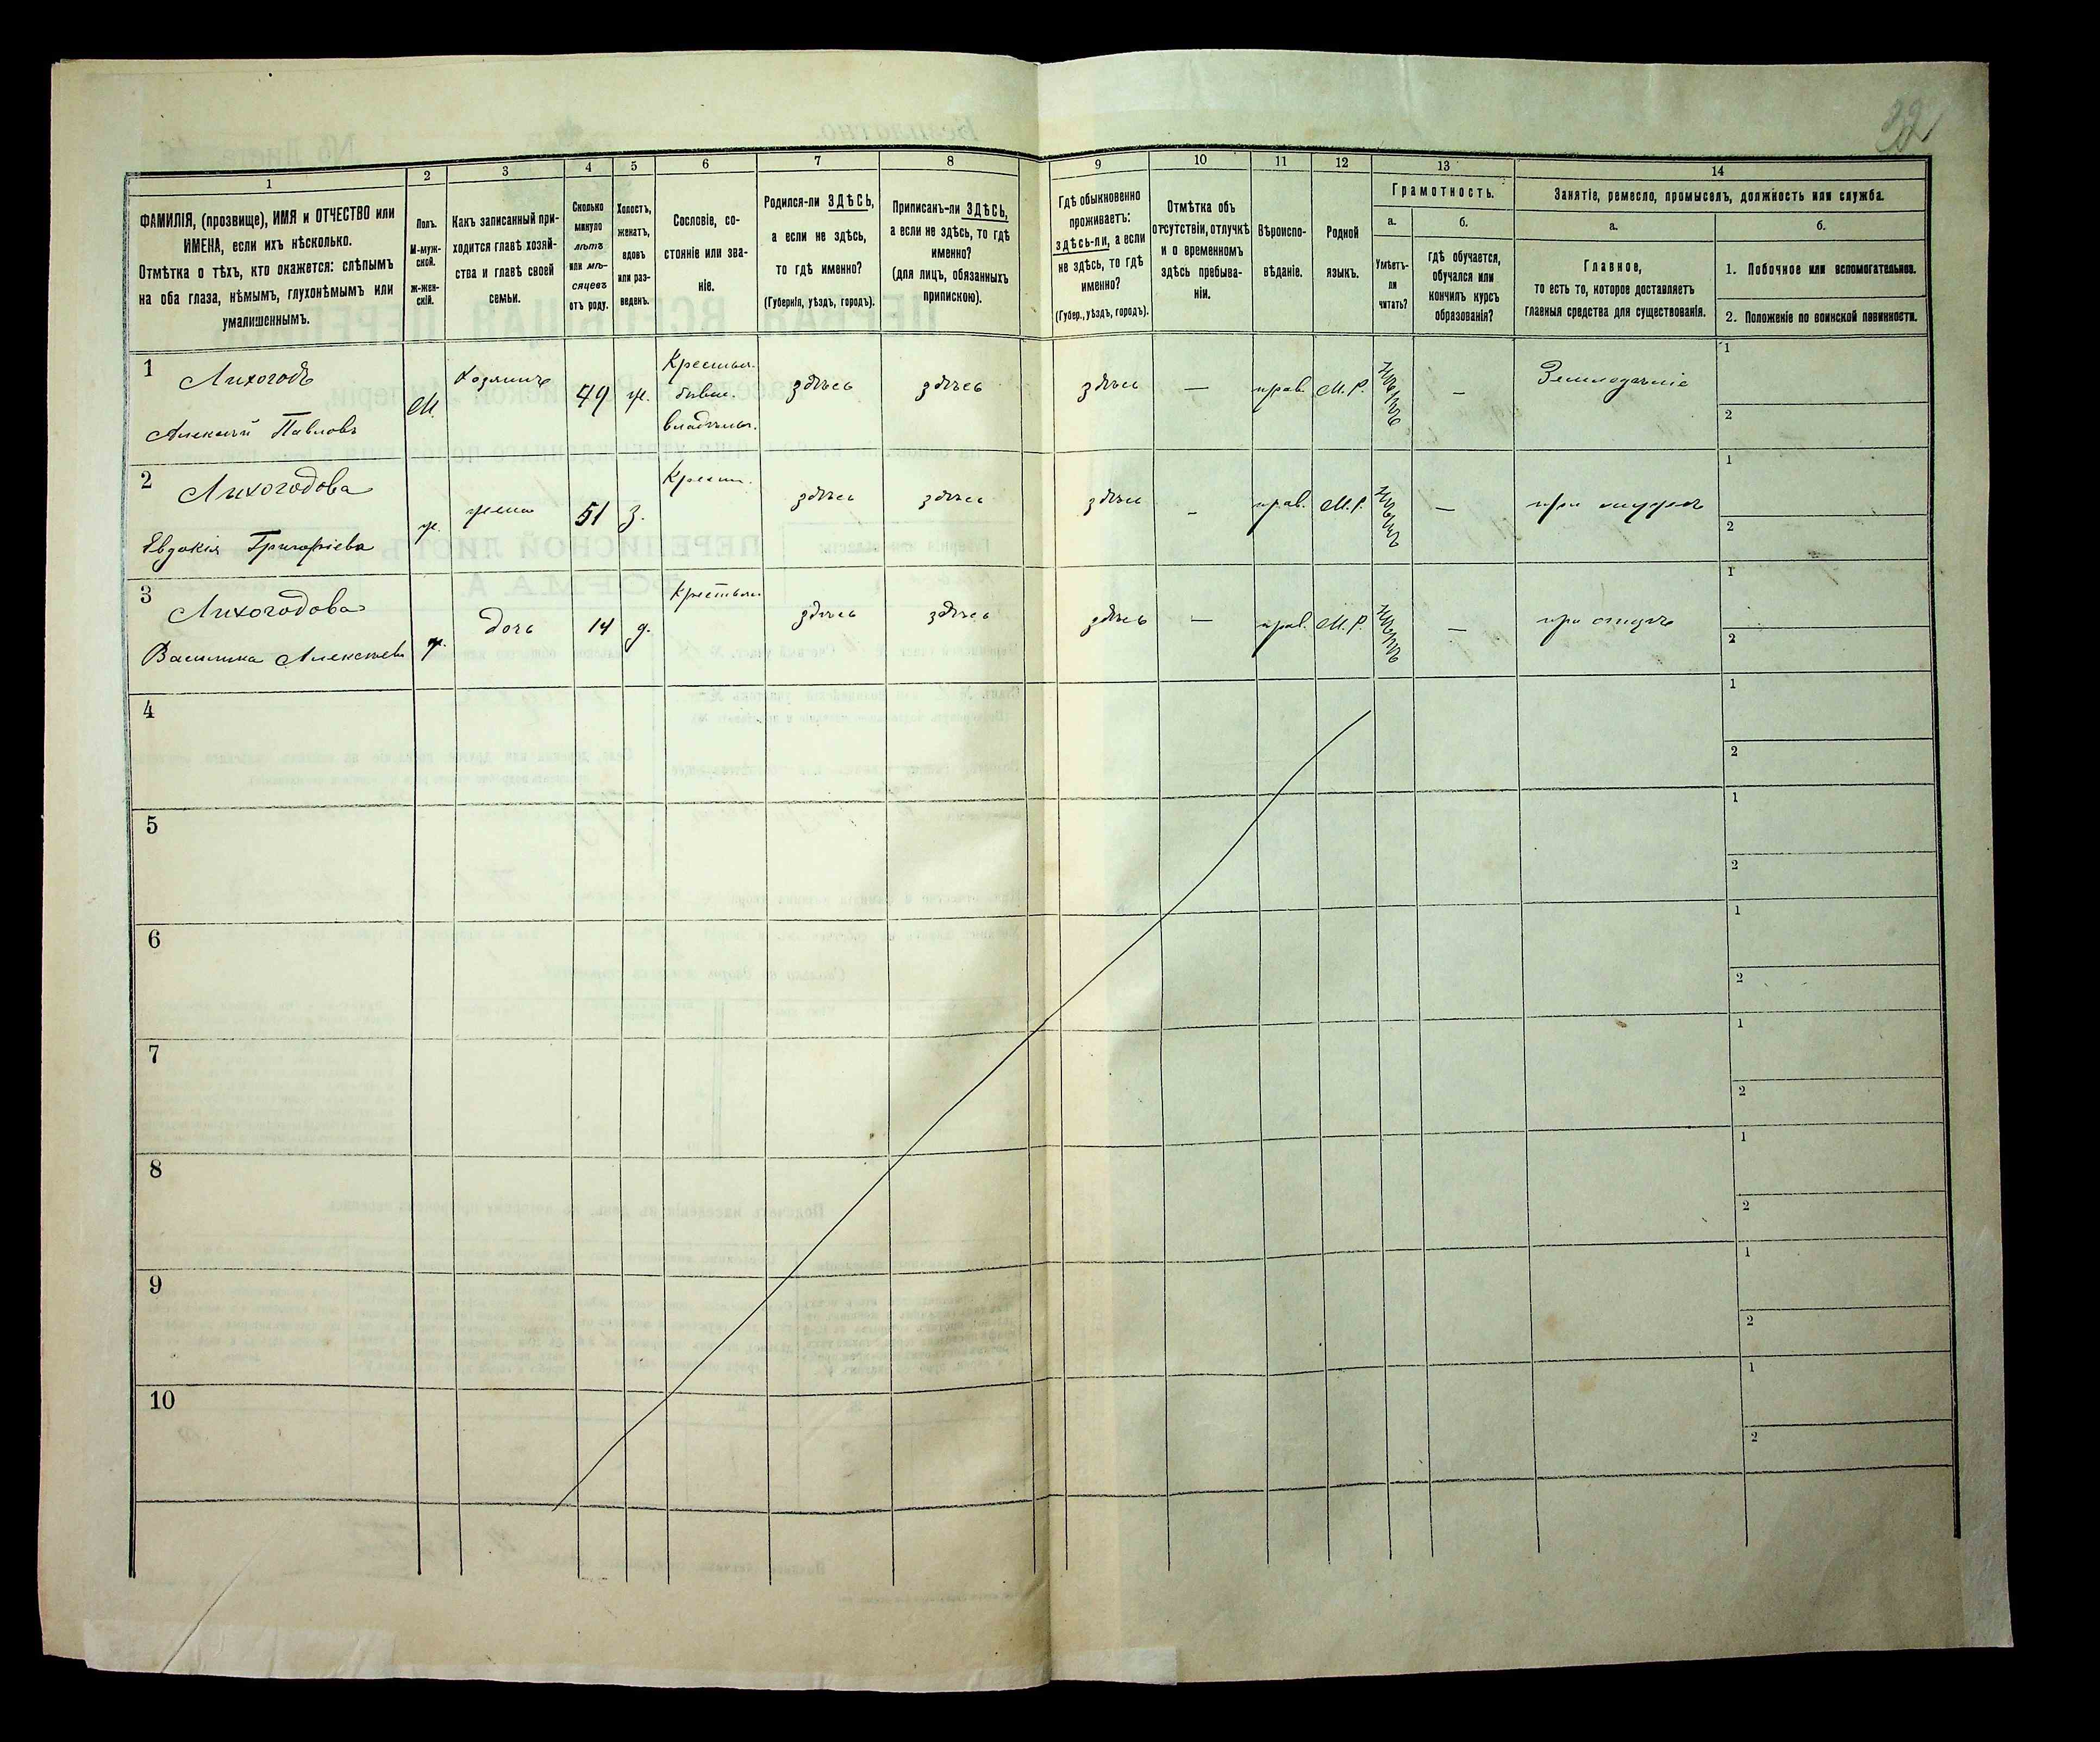 32
1 2 3 4 5 6 7 8 9 10 11 12 13 14
ФАМИЛІЯ, (прозвище), ИМЯ и ОТЧЕСТВО или
ИМЕНА, если ихъ нѣсколько.
Отмѣтка о тѣхъ, кто окажется: слѣпымъ
на оба глаза, нѣмымъ, глухонѣмымъ или
умалишеннымъ.
Полъ.
М-муж-
ской.
Ж-жен-
скій.
Какъ записанный при-
ходится главѣ хозяй-
ства и главѣ своей
семьи.
Сколько
минуло
лѣтъ
или мѣ-
сяцевъ
отъ роду.
Холостъ,
женатъ,
вдовъ
или раз-
веденъ.
Сословіе, со-
стояніе или зва-
ніе.
Родился-ли ЗДѢСЬ,
а если не здѣсь,
то гдѣ именно?
(Губернія, уѣздъ, городъ).
Приписанъ-ли ЗДѢСЬ,
а если не здѣсь, то гдѣ
именно?
(для лицъ, обязанныхъ
припискою).
Гдѣ обыкновенно
проживаетъ:
здѣсь-ли, а если
не здѣсь, то гдѣ
именно?
(Губер., уѣздъ, городъ).
Отмѣтка объ
отсутствіи, отлучкѣ
и о временномъ
здѣсь пребыва-
ніи.
Вѣроиспо-
вѣданіе.
Родной
языкъ.
Грамотность.
а.
Умѣетъ-
ли
читать?
б.
гдѣ обучается,
обучался или
кончилъ курсъ
образованія?
Занятіе, ремесло, промыселъ, должность или служба.
а.
Главное,
то есть то, которое доставляетъ
главныя средства для существованія.
б.
1. Побочное или вспомогательное.
2. Положеніе по воинской повинности.
1
Лихогодъ
Алексѣй Павловъ
М.
Хозяинъ
49
ж.
Крестьян.
бывш.
владѣльч.
здѣсь
здѣсь
здѣсь
—
прав.
М. Р.
—
Земледѣліе
1
2
2
Лихогодова
Евдокія Григоріева
ж.
жена
51
з.
Крестьян.
здѣсь
здѣсь
здѣсь
—
прав.
М. Р.
—
при мужѣ
1
2
3
Лихогодова
Василиса Алексѣева
ж.
дочь
14
д.
Крестьян.
здѣсь
здѣсь
здѣсь
—
прав.
М. Р.
—
при отцѣ
1
2
4
1
2
5
1
2
6
1
2
7
1
2
8
1
2
9
1
2
10
1
2